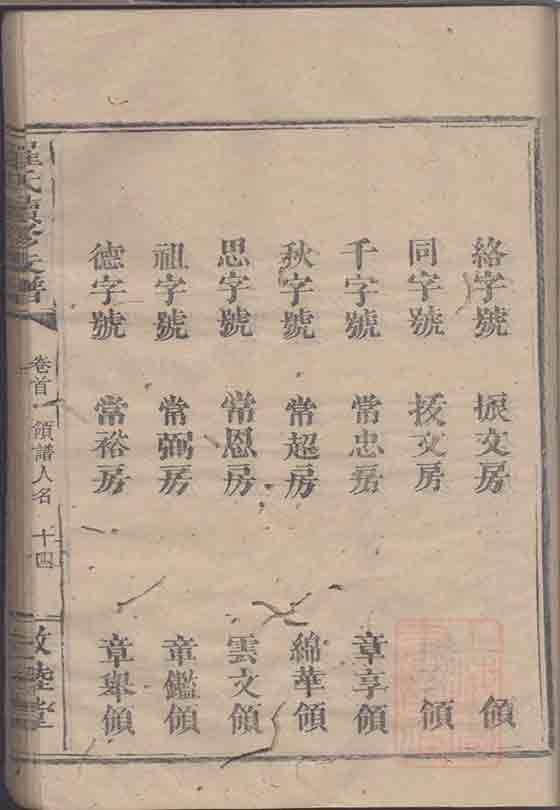 絡字號 振文房 領
同字號 拔文房 領
千字號 常忠房 章享領
秋字號 常超房 綿華領
思字號 常恩房 雲文領
祖字號 常弼房 童鑑領
德字號 常裕房 章舉領
氏續修支譜
卷首 領譜人名 十四
敦陸堂